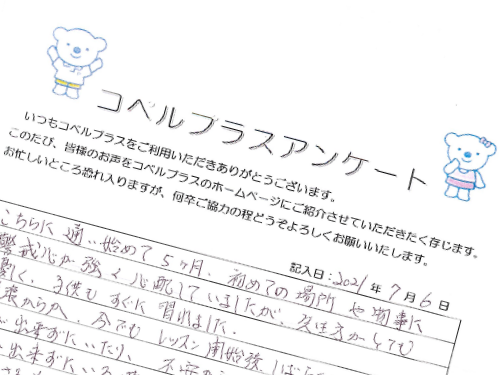 コペルプラスアンケート
いつもコペルプラスをご利用いただきありがとうございます。
このたび、皆様のお声をコペルプラスのホームページにご紹介させていただきたく存じます。
お忙しいところ恐れ入りますが、何卒ご協力の程どうぞよろしくお願いいたします。
記入日：2021年7月6日
こちらに通い始めて5ヶ月。初めての場所や物事に
警戒心が強く心配していましたが、先生方がとても
優しく、子供もすぐに習れました。
からか、今でもレッスン開始後しばら
出来ずにいたり、不安
出来ずにい